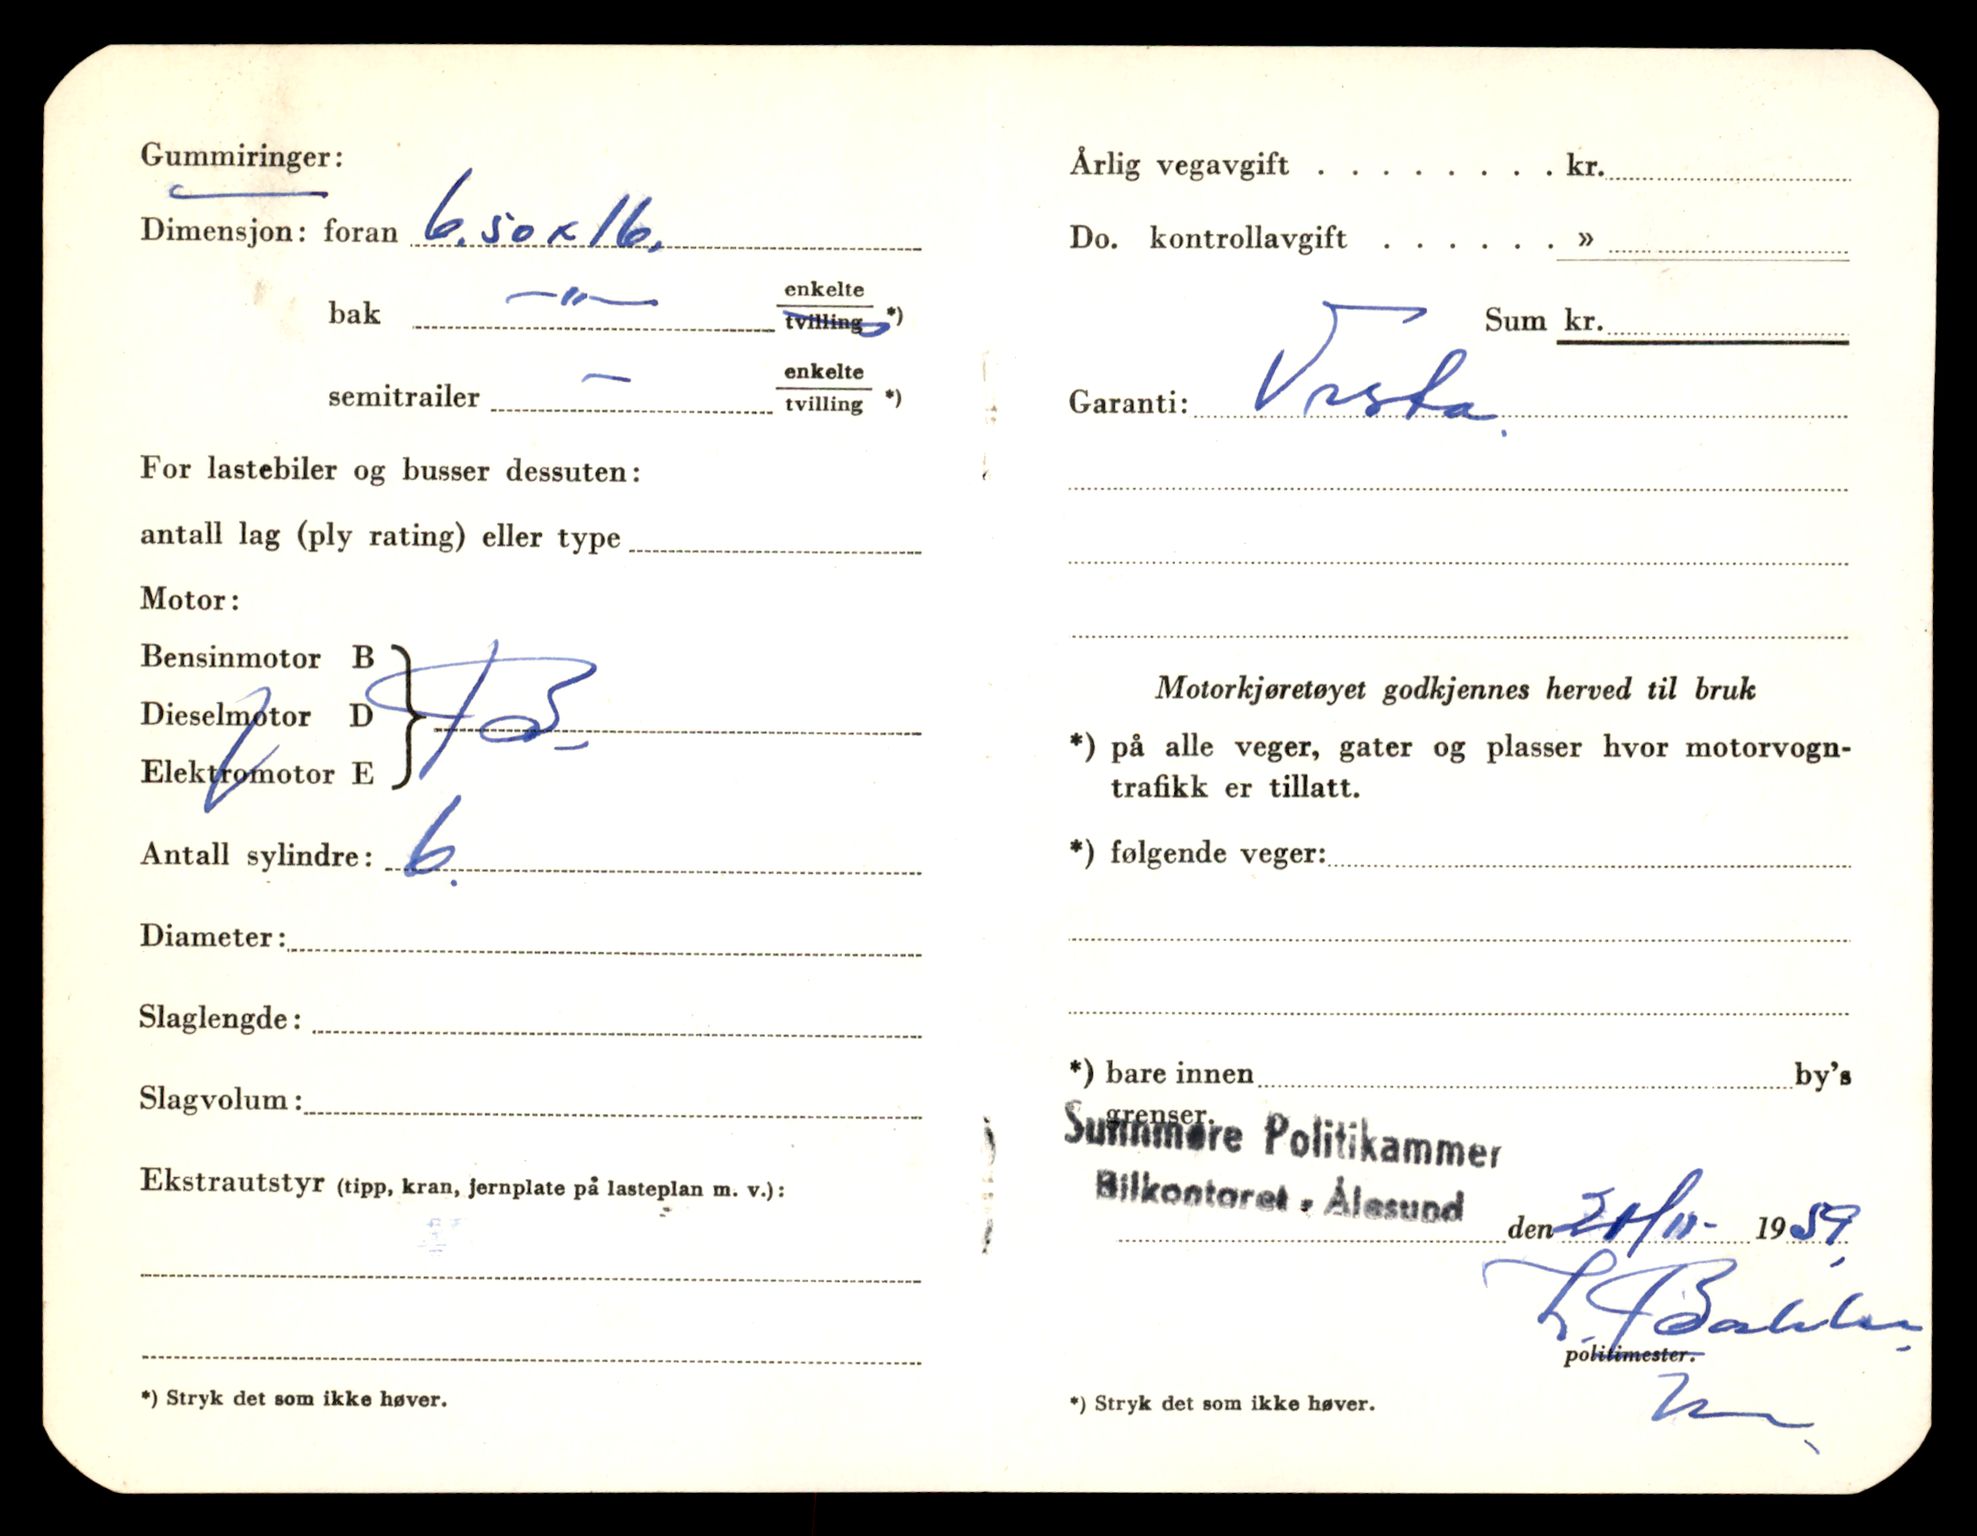 Gummiringer:
Dimensjon: foran 6.50 x 16.
bak —"— enkelte
tvilling *)
semitrailer — enkelte
tvilling *)
For lastebiler og busser dessuten:
antall lag (ply rating) eller type
Motor:
Bensinmotor B
Dieselmotor D B
Elektromotor E
Antall sylindre: 6.
Diameter:
Slaglengde:
Slagvolum:
Ekstrautstyr (tipp, kran, jernplate på lasteplan m. v.):
*) Stryk det som ikke høver.
Årlig vegavgift . . . . . . . . kr.
Do. kontrollavgift . . . . . . »
Sum kr.
Garanti:
Motorkjøretøyet godkjennes herved til bruk
*) på alle veger, gater og plasser hvor motorvogn-
trafikk er tillatt.
*) følgende veger:
*) bare innen by's
grenser.
Sunnmøre Politikammer
Bilkontoret - Ålesund
den 21/11- 1959.
politimester.
*) Stryk det som ikke høver.